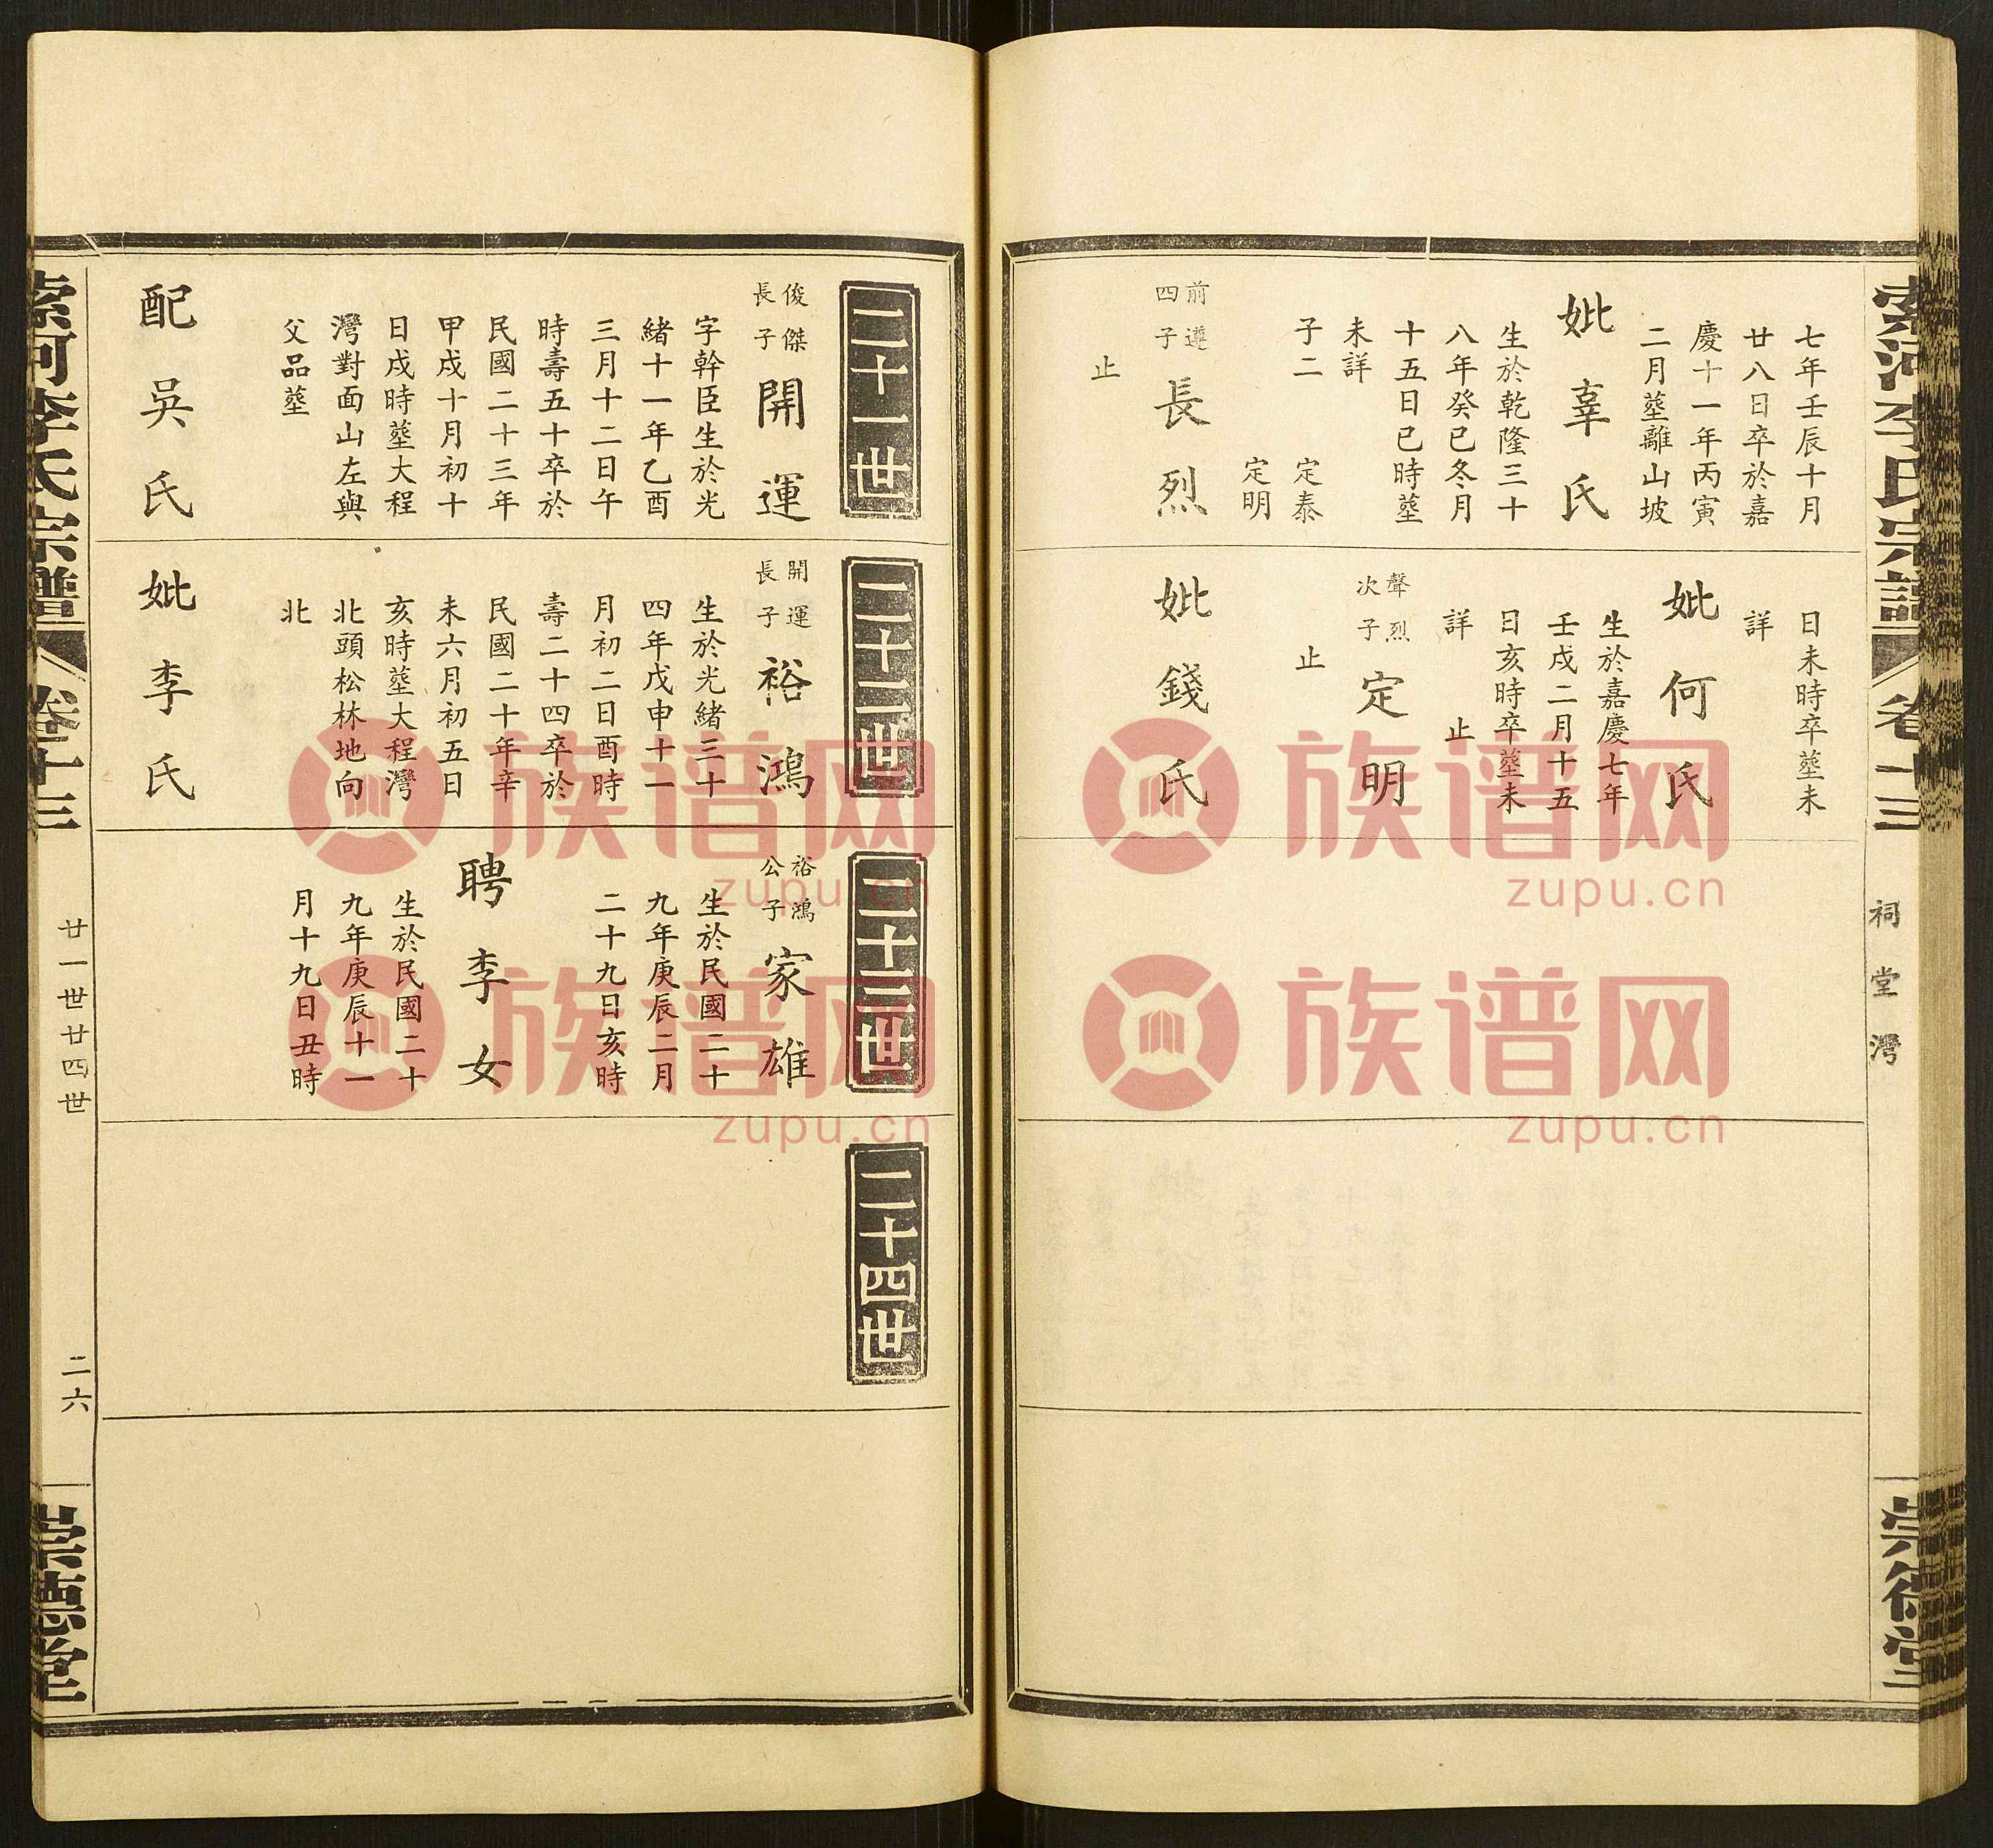 索河李氏宗譜
卷十三
祠堂灣
崇德堂
七年壬辰十月
廿八日卒於嘉
慶十一年丙寅
二月塟離山坡
妣辜氏
生於乾隆三十
八年癸巳冬月
十五日巳時塟
未詳
子二
定泰
定明
前遵
四子
長烈
止
日未時卒塟未
詳
妣何氏
生於嘉慶七年
壬戌二月十五
日亥時卒塟未
詳
止
聲烈
次子
定明
止
妣錢氏
二十一世
俊傑
長子
開運
字幹臣生於光
緒十一年乙酉
三月十二日午
時壽五十卒於
民國二十三年
甲戌十月初十
日戌時塟大程
灣對面山左與
父品塟
配吳氏
二十二世
開運
長子
裕鴻
生於光緒三十
四年戊申十一
月初二日酉時
壽二十四卒於
民國二十年辛
未六月初五日
亥時塟大程灣
北頭松林地向
北
妣李氏
二十三世
裕鴻
公子
家雄
生於民國二十
九年庚辰二月
二十九日亥時
聘李女
生於民國二十
九年庚辰十一
月十九日丑時
二十四世
索河李氏宗譜
卷十三
廿一世廿四世
二六
崇德堂
族谱网
zupu.cn
族谱网
zupu.cn
族谱网
zupu.cn
族谱网
zupu.cn